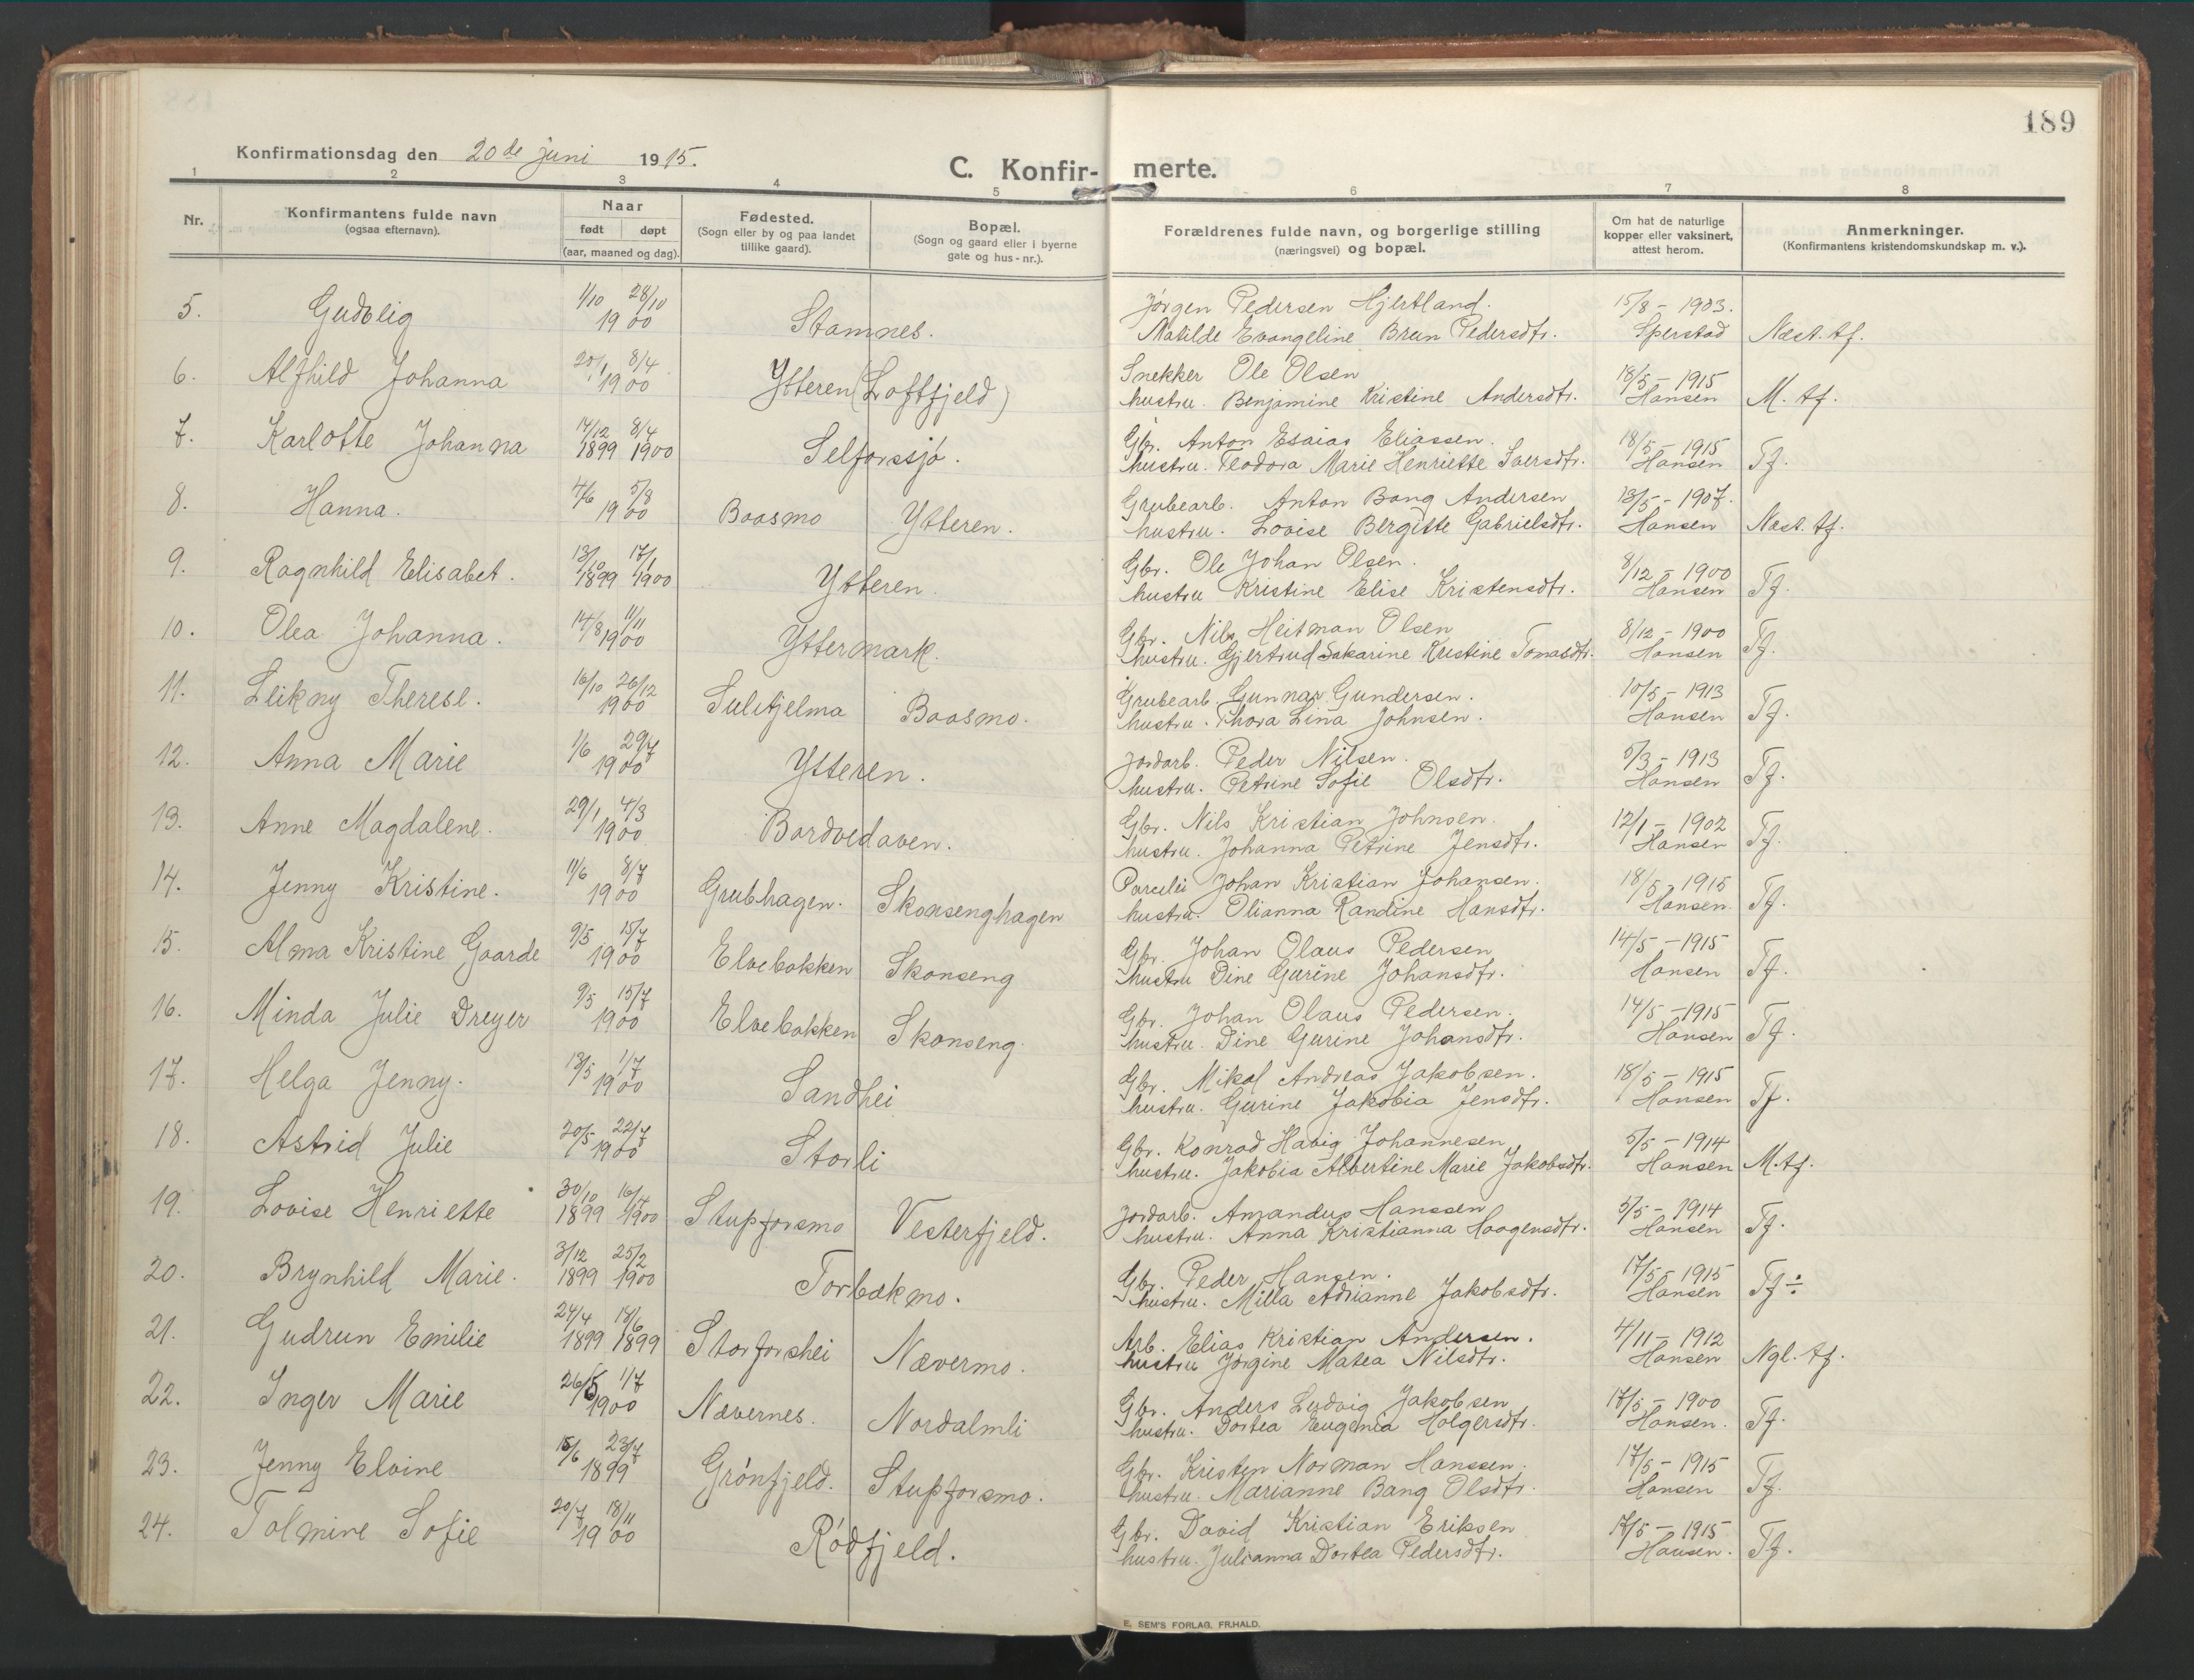 189
Konfirmationsdag den 20de juni 1915.
C. Konfir- merte.
1 2 3 4 5 6 7 8
Nr.
Konfirmantens fulde navn
(ogsaa efternavn).
Naar
født døpt
(aar, maaned og dag).
Fødested.
(Sogn eller by og paa landet
tillike gaard).
Bopæl.
(Sogn og gaard eller i byerne
gate og hus-nr.).
Forældrenes fulde navn, og borgerlige stilling
(næringsvei) og bopæl.
Om hat de naturlige
kopper eller vaksinert,
attest herom.
Anmerkninger.
(Konfirmantens kristendomskundskap m. v.).
5. Gudolig 1/10 28/10 1900 Stamnes. Jørgen Pedersen Hjertland. 15/8 - 1903.
Matilde Evangeline Brun Pedersdtr. Sperstad Næst. tf.
6. Alfhild Johanna 20/1 8/4 1900 Ytteren (Loftfjeld) Snekker Ole Olsen 18/5 - 1915
hustru. Benjamine Kristine Andersdtr. Hansen M. tf.
7. Karlotte Johanna 14/12 8/4 1899 1900 Selforssjø. Gbr. Anton Esaias Eliassen. 18/5 - 1915
hustru. Teodora Marie Henriette Iversdtr. Hansen Tf.
8. Hanna. 4/6 5/8 1900 Baasmo Ytteren. Grubearb. Anton Bang Andersen 13/5 - 1907.
hustru. Lovise Bergitte Gabrielsdtr. Hansen Næst. tf.
9. Ragnhild Elisabet. 13/10 17/1 1899 1900 Ytteren. Gbr. Ole Johan Olsen. 8/12 - 1900
hustru Kristine Elise Kristensdtr. Hansen Tf.
10. Olea Johanna. 14/8 11/11 1900 Yttermark. Gbr. Nils Heitman Olsen 8/12 - 1900
hustru. Gjertrud Sakarine Kristine Tomasdtr. Hansen Tf.
11. Leikny Therese. 16/10 26/12 1900 Sulitjelma Baasmo. Grubearb. Gunnar Gundersen. 10/5 - 1913
hustru. Thora Lina Johnsen. Hansen Tf.
12. Anna Marie 1/6 29/7 1900 Ytteren. Jordarb. Peder Nilsen. 5/3 - 1913
hustru. Petrine Sofie Olsdtr. Hansen Tf.
13. Anne Magdalene. 29/1 4/3 1900 Bordvedaven. Gbr. Nils Kristian Johnsen. 12/1 - 1902
hustru. Johanna Petrine Jensdtr. Hansen Tf.
14. Jenny Kristine. 11/6 8/7 1900 Grubhagen. Skonsenghagen Parcelei Johan Kristian Johansen. 18/5 - 1915
hustru. Olianna Randine Hansdtr. Hansen. Tf.
15. Alma Kristine Gaarde 9/5 15/7 1900 Elvebakken Skonseng Gbr. Johan Olaus Pedersen 14/5 - 1915
hustru Dine Gurine Johansdtr. Hansen Tf.
16. Minda Julie Dreyer 9/5 15/7 1900 Elvebakken Skonseng. Gbr. Johan Olaus Pedersen. 14/5 - 1915
hustru. Dine Gurine Johansdtr. Hansen Tf.
17. Helga Jenny. 13/5 1/7 1900 Sandhei Gbr. Mikal Andreas Jakobsen. 18/5 - 1915
hustru. Gurine Jakobia Jensdtr. Hansen Tf.
18. Astrid Julie 20/5 22/7 1900 Storli Gbr. Konrad Havig Johannesen 5/5 - 1914
hustru. Jakobia Albertine Marie Jakobsdtr. Hansen M. tf.
19. Lovise Henriette 30/10 16/4 1899 1900 Stupforsmo Vesterfjeld. Jordarb. Amandus Hanssen 5/5 - 1914
hustru. Anna Kristianna Haagensdtr. Hansen Tf.
20. Brynhild Marie. 3/12 25/2 1899 1900 Torbækmo. Gbr. Peder Hansen. 17/5 - 1915
hustru. Milla Adrianne Jakobsdtr. Hansen Tf ÷
21. Gudrun Emilie 24/4 18/6 1899 1899 Storforshei Nævermo. Arb. Elias Kristian Andersen. 4/11 - 1912
hustru Jørgine Matea Nilsdtr. Hansen Ngl. tf.
22. Inger Marie 26/5 1/7 1900 Nævernes. Nordalmli Gbr. Anders Ludvig Jakobsen 17/5 - 1900
hustru. Dortea Eugenia Holgersdtr. Hansen. Tf.
23. Jenny Elvine 15/6 23/7 1899 Grønfjeld. Stupforsmo. Gbr. Kristen Norman Hanssen. 17/5 - 1915
hustru. Marianne Bang Olsdtr. Hansen Tf.
24. Tolmine Sofie 20/7 18/11 1900 Rødfjeld. Gbr. David Kristian Eriksen 17/5 - 1915
hustru. Julianna Dortea Pedersdtr. Hansen. Tf.
E. SEM'S FORLAG, FR.HALD.